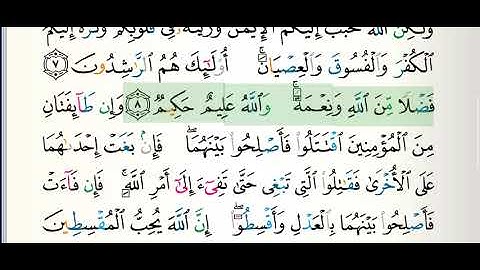 وَلَٰكِنَّ ٱللَّهَ حَبَّبَ إِلَيْكُمُ ٱلْإِيمَٰنَ وَزَيَّنَهُۥ فِى قُلُوبِكُمْ وَكَرَّهَ إِلَيْكُمُ
ٱلْكُفْرَ وَٱلْفُسُوقَ وَٱلْعِصْيَانَ ۚ أُو۟لَٰٓئِكَ هُمُ ٱلرَّٰشِدُونَ ٧
فَضْلًا مِّنَ ٱللَّهِ وَنِعْمَةً ۚ وَٱللَّهُ عَلِيمٌ حَكِيمٌ ٨ وَإِن طَآئِفَتَانِ
مِنَ ٱلْمُؤْمِنِينَ ٱقْتَتَلُوا۟ فَأَصْلِحُوا۟ بَيْنَهُمَا ۖ فَإِنۢ بَغَتْ إِحْدَىٰهُمَا
عَلَى ٱلْأُخْرَىٰ فَقَٰتِلُوا۟ ٱلَّتِى تَبْغِى حَتَّىٰ تَفِىٓءَ إِلَىٰٓ أَمْرِ ٱللَّهِ ۚ فَإِن فَآءَتْ
فَأَصْلِحُوا۟ بَيْنَهُمَا بِٱلْعَدْلِ وَأَقْسِطُوٓا۟ ۖ إِنَّ ٱللَّهَ يُحِبُّ ٱلْمُقْسِطِينَ